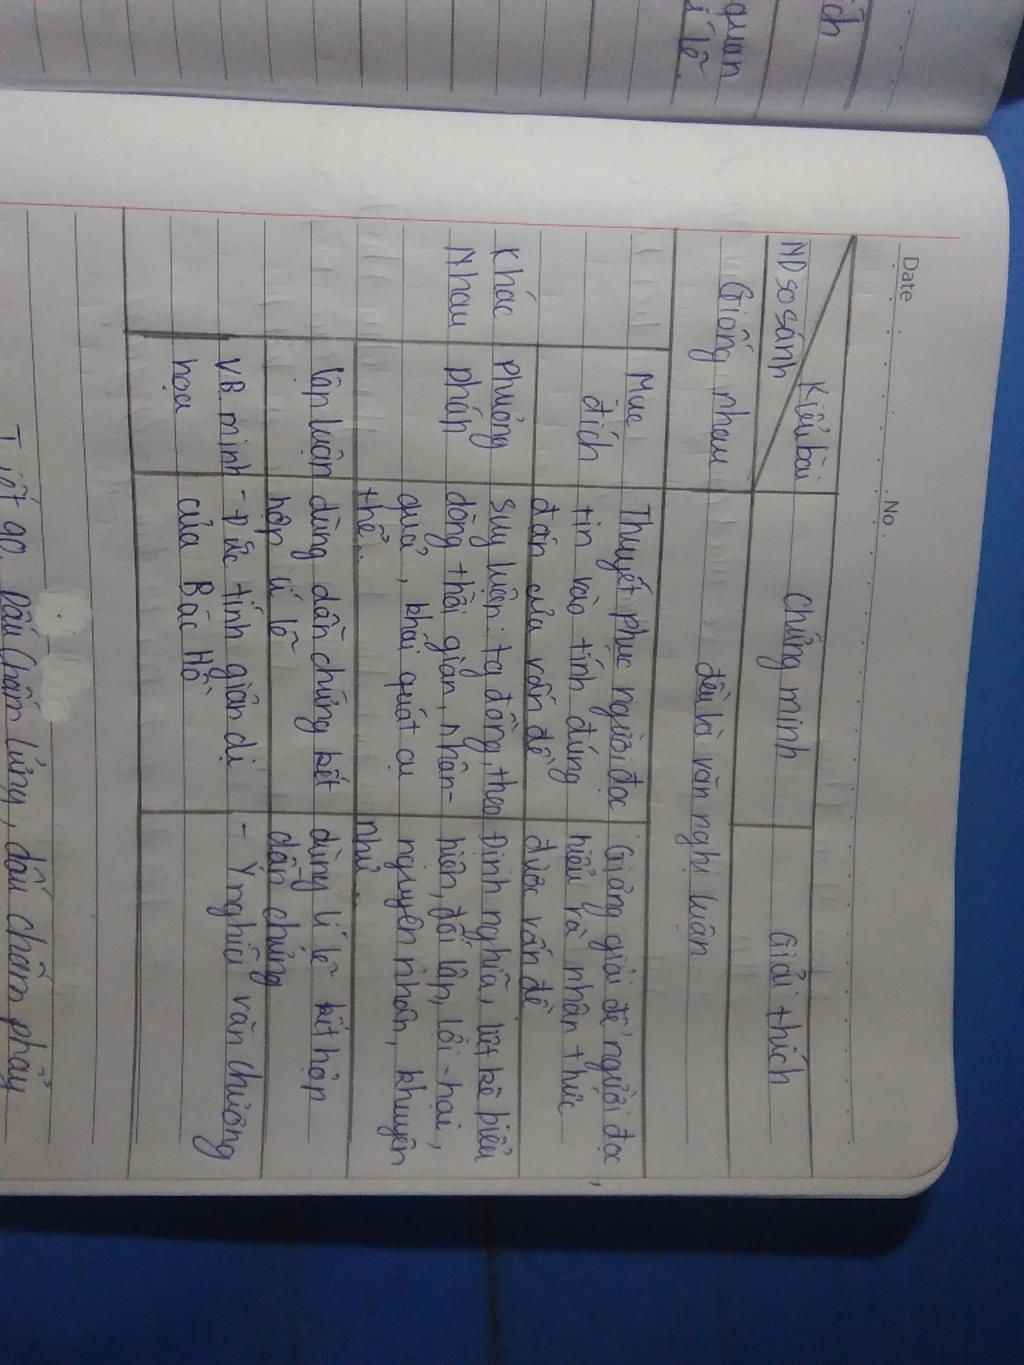 ích
quan
í lẽ
Date
No.
Kiểu bài
ND so sánh
Chứng minh
Giải thích
Giống nhau
đều là văn nghị luận
Khác
Nhau
Mục
đích
Thuyết phục người đọc
tin vào tính đúng
đắn của vấn đề
Giảng giải để người đọc,
hiểu và nhận thức
được vấn đề
Phương
pháp
Suy luận: tg đồng, theo
dòng thời gian, nhân-
quả, khái quát cụ
thể..
Định nghĩa, liệt kê biểu
hiện, đối lập, lợi-hại,
nguyên nhân, khuyên
nhủ..
lập luận
dùng dẫn chứng kết
hợp lí lẽ
dùng lí lẽ kết hợp
dẫn chứng
VB minh
họa
- Đức tính giản dị
của Bác Hồ
- Ý nghĩa văn chương
gạ, Dấu Chấm lửng, dấu chấm phẩy